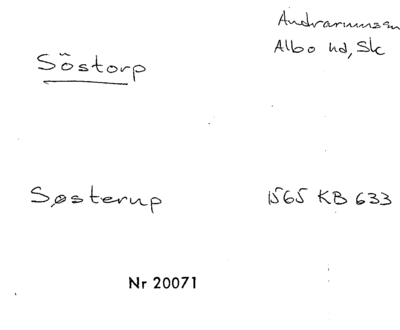 Andrarums sn
Albo hd, Sk
Söstorp
Søsterup 1565 KB 633
Nr 20071